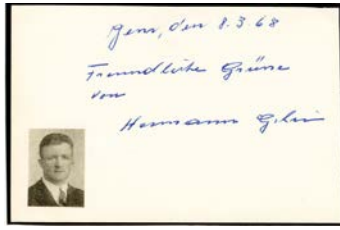 Genf, den 8.3.68
Freundliche Grüsse
von
Hermann